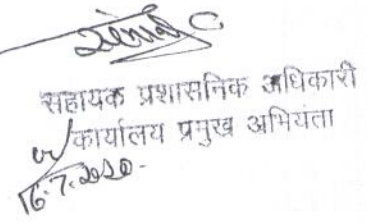 सहायक प्रशासनिक अधिकारी
कार्यालय प्रमुख अभियंता
16.7.2020-